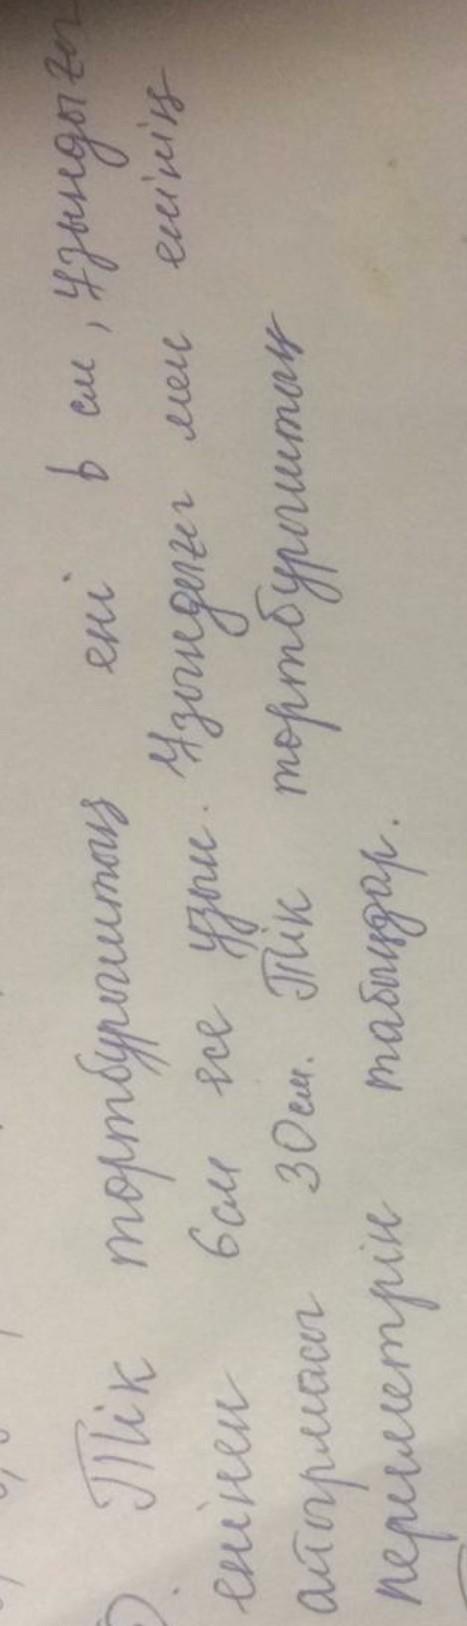 Тік тортбұрыштың ені b см, Ұзындығы
енінен 6см есе ұзын. Ұзындығы мен енінің
айырмасы 30см. Тік тортбұрыштың
периметрін табыңдар.